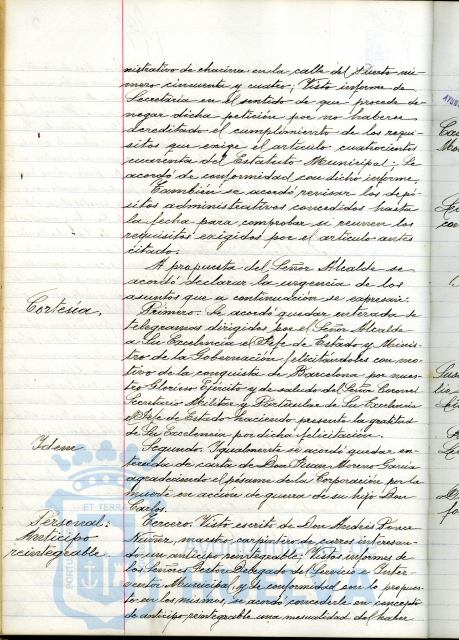 nistrativo de chacina en la calle del Puerto nú-
mero cincuenta y cuatro; Visto informe de
Secretaría en el sentido de que procede de-
negar dicha petición por no haberse
acreditado el cumplimiento de los requi-
sitos que exige el artículo cuatrocientos
cuarenta del Estatuto Municipal; Se
acordó de conformidad con dicho informe.
También se acordó revisar los depó-
sitos administrativos concedidos hasta
la fecha para comprobar si reunen los
requisitos exigidos por el artículo antes
citado.
A propuesta del Señor Alcalde se
acordó declarar la urgencia de los
asuntos que a continuación se expresan:
Cortesía.
Primero. Se acordó quedar enterada de
telegramas dirigidos por el Señor Alcalde
a Su Excelencia el Jefe de Estado y Minis-
tro de la Gobernación felicitándoles con mo-
tivo de la conquista de Barcelona por nues-
tro Glorioso Ejército y de saluda del Señor Coronel
Secretario Militar y Particular de Su Excelencia
el Jefe de Estado haciendo presente la gratitud
de Su Excelencia por dicha felicitación.
Idem
Segundo. Igualmente se acordó quedar en-
terada de carta de Don Juan Moreno García
agradeciendo el pésame de la Corporación por la
muerte en acción de guerra de su hijo Don
Carlos.
Personal:
Anticipo
reintegrable
Tercero. Visto escrito de Don Andrés Ponce
Núñez, maestro carpintero de carros interesan-
do un anticipo reintegrable: Vistos informes de
los Señores Gestor Delegado del Servicio e Inter-
ventor Municipal y de conformidad con lo propues-
to en los mismos, se acordó concederle en concepto
de anticipo reintegrable una mensualidad del haber
ET TERRA